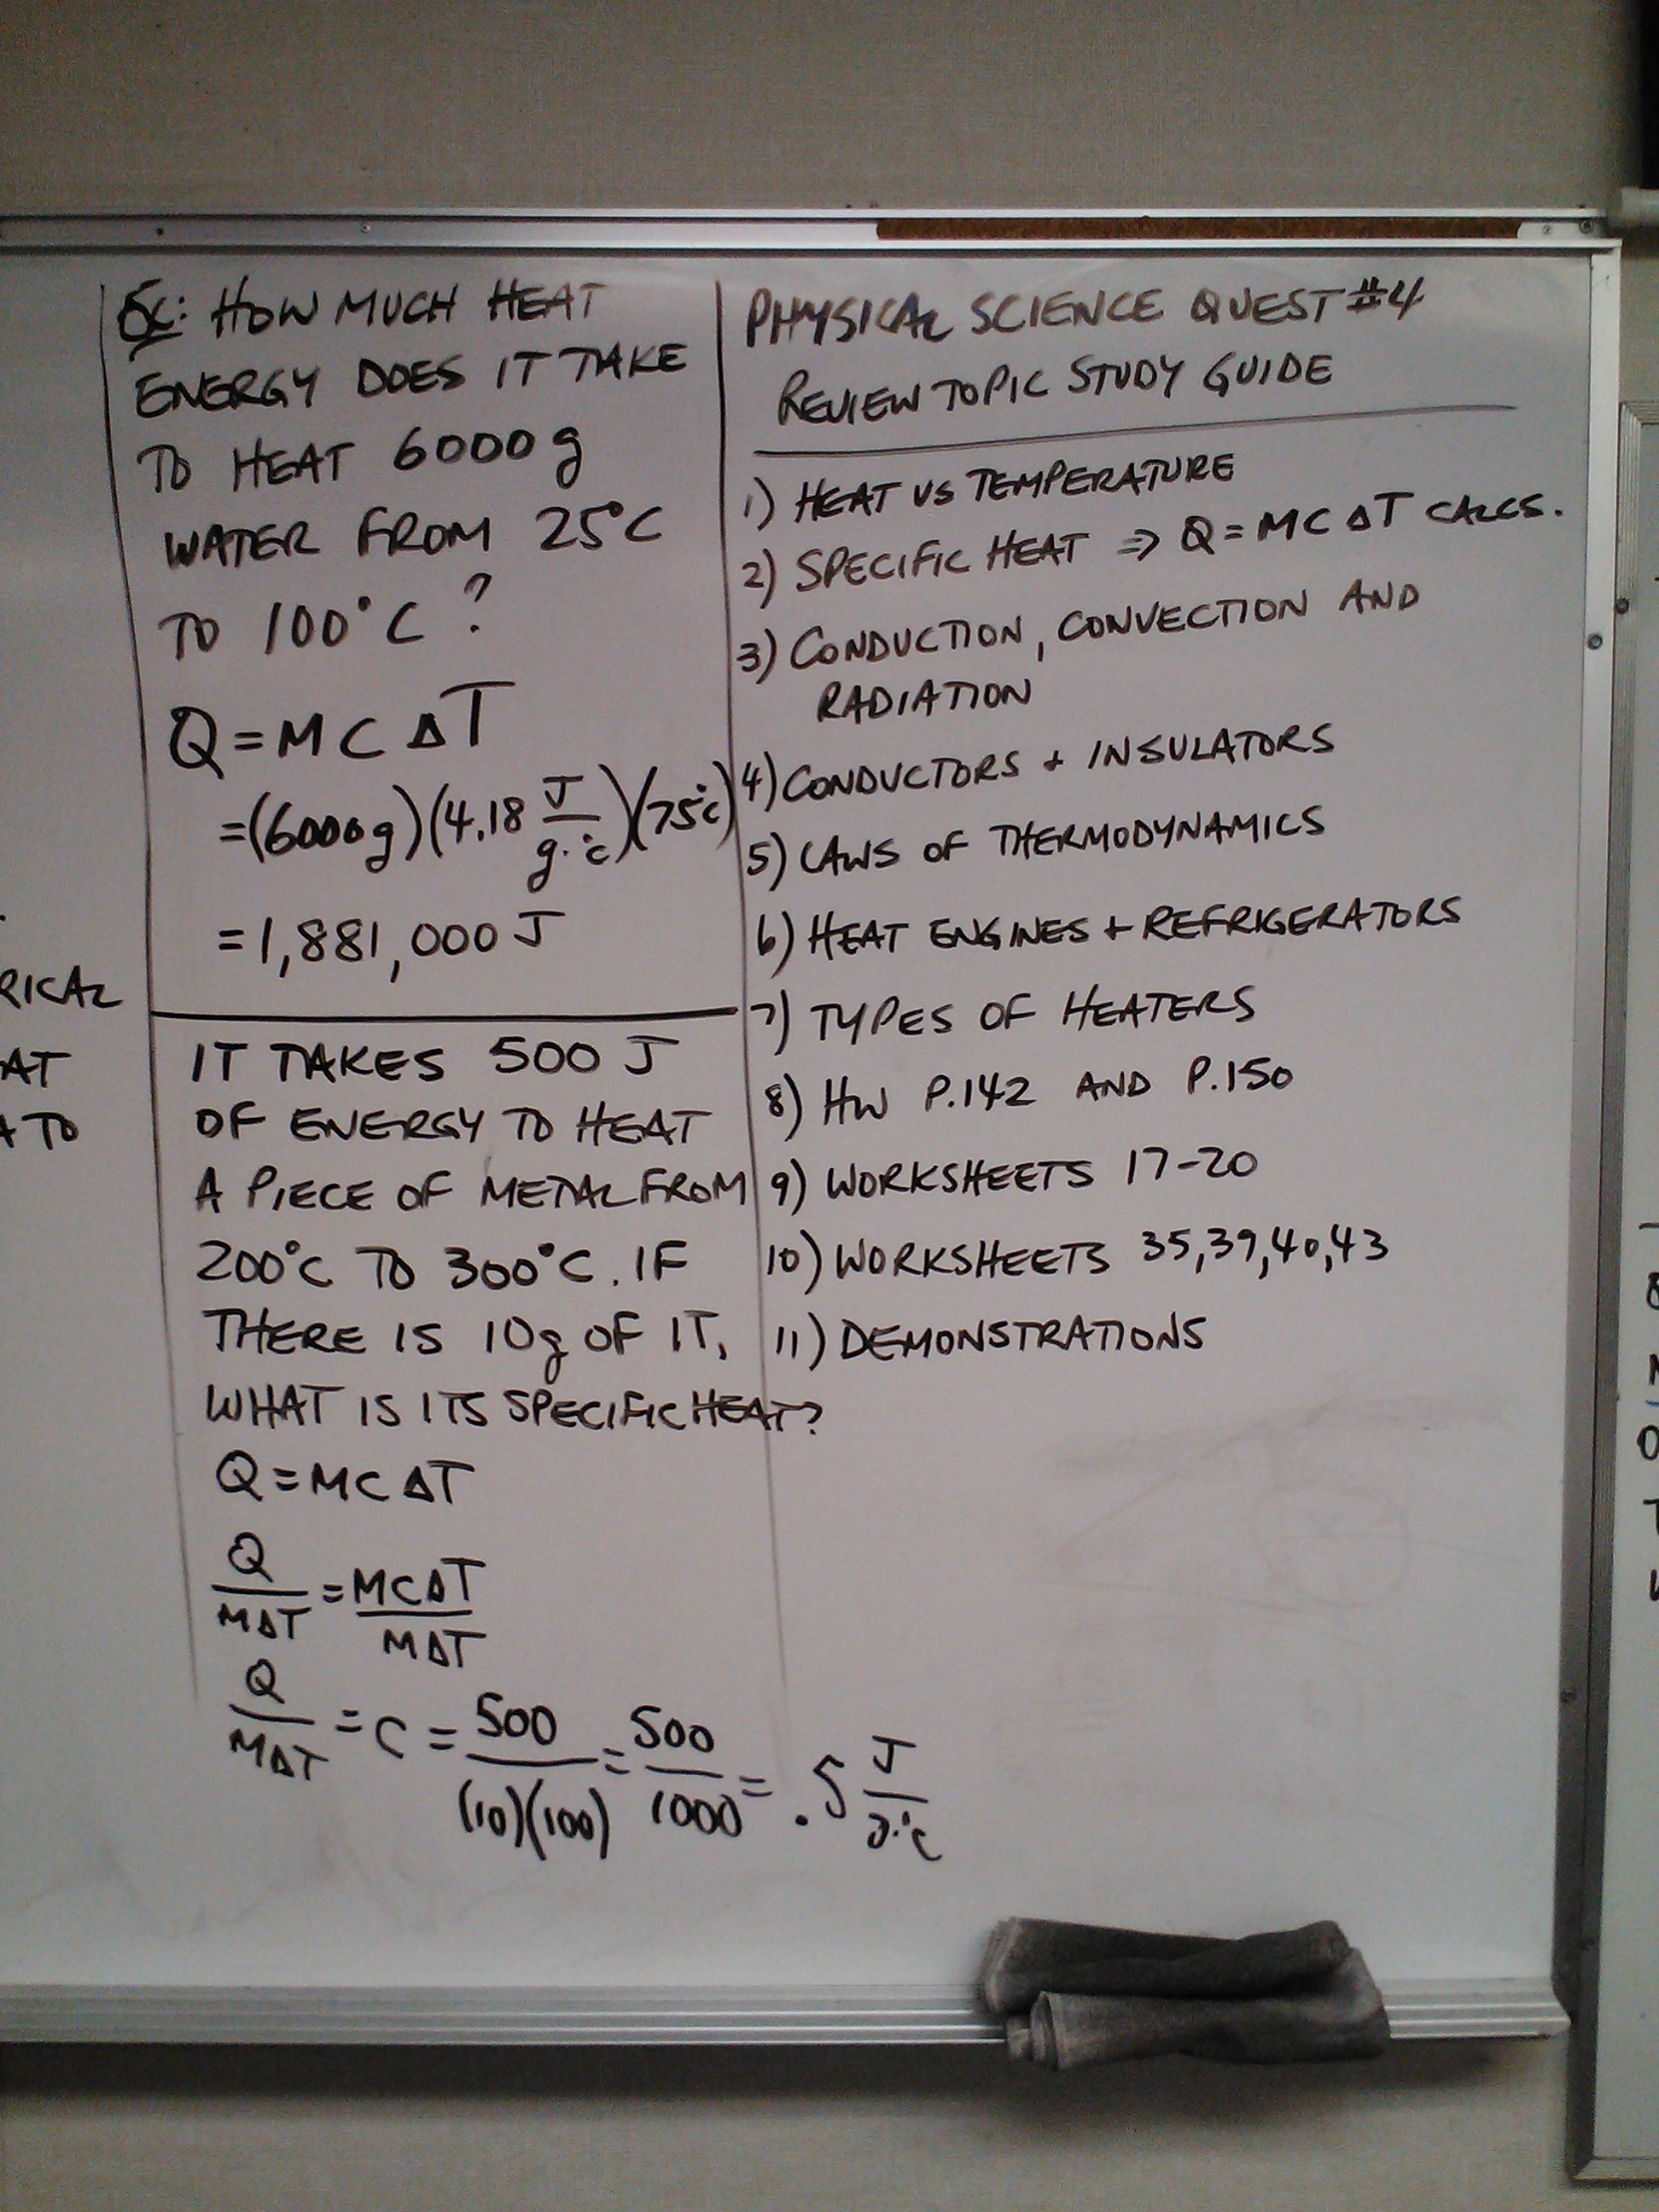 RICAL
AT
TO
EX: HOW MUCH HEAT
ENERGY DOES IT TAKE
TO HEAT 6000g
WATER FROM 25°C
TO 100°C?
Q=MCΔT
=(6000g)(4.18 J/g·°C)(75°C)
=1,881,000 J
IT TAKES 500 J
OF ENERGY TO HEAT
A PIECE OF METAL FROM
200°C TO 300°C. IF
THERE IS 10g OF IT,
WHAT IS ITS SPECIFIC HEAT?
Q=MCΔT
Q/MΔT = MCΔT/MΔT
Q/MΔT = C = 500/(10)(100) = 500/1000 = .5 J/g·°C
PHYSICAL SCIENCE QUEST #4
REVIEW TOPIC STUDY GUIDE
1) HEAT VS TEMPERATURE
2) SPECIFIC HEAT ⇒ Q=MCΔT CALCS.
3) CONDUCTION, CONVECTION AND
RADIATION
4) CONDUCTORS + INSULATORS
5) LAWS OF THERMODYNAMICS
6) HEAT ENGINES + REFRIGERATORS
7) TYPES OF HEATERS
8) HW P.142 AND P.150
9) WORKSHEETS 17-20
10) WORKSHEETS 35,39,40,43
11) DEMONSTRATIONS